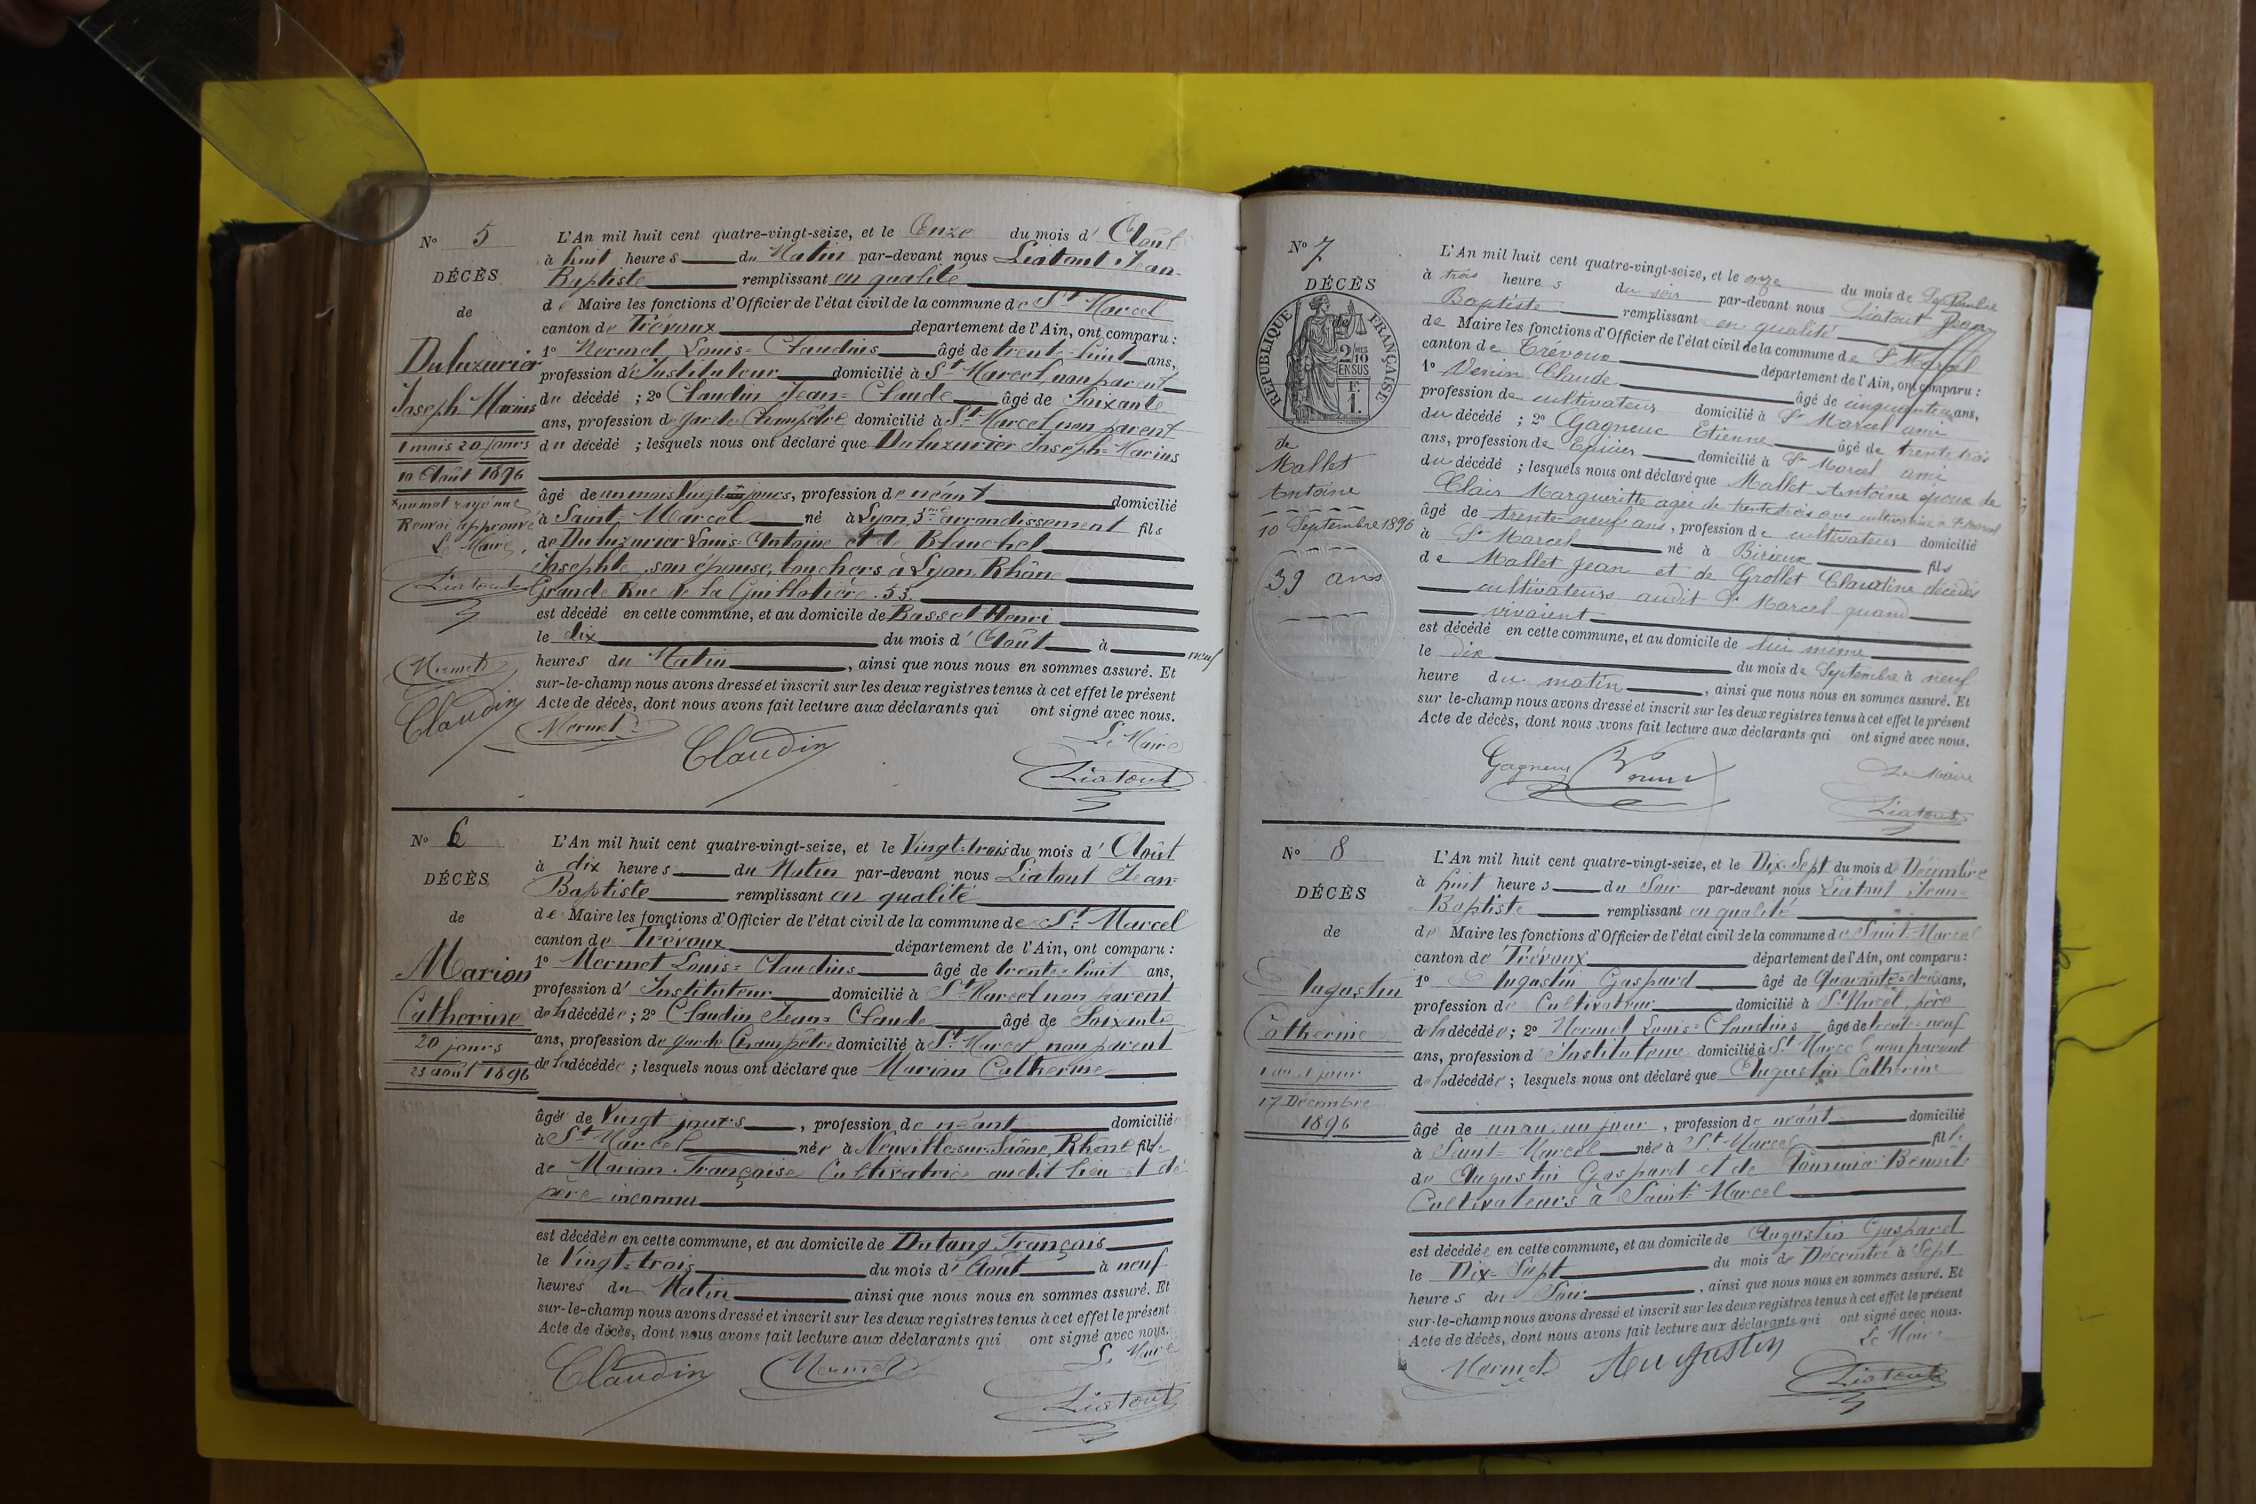 N° 5
DÉCÈS
de
Duluzurier
Joseph Marius
1 mois 20 jours
10 Août 1896
un mot rayé nul
Renvoi approuvé
Le Maire,
Liatout
Mermet
Claudin
L'An mil huit cent quatre-vingt-seize, et le Onze du mois d' Août
à huit heures du Matin par-devant nous Liatout Jean-
Baptiste remplissant en qualité
de Maire les fonctions d'Officier de l'état civil de la commune de St Marcel
canton de Trévoux département de l'Ain, ont comparu :
1° Mermet Louis-Claudius âgé de trente-huit ans,
profession d'Instituteur domicilié à St Marcel, non parent
du décédé ; 2° Claudin Jean-Claude âgé de Soixante
ans, profession de garde Champêtre domicilié à St Marcel non parent
du décédé ; lesquels nous ont déclaré que Duluzurier Joseph-Marius
âgé de un mois vingt jours, profession de néant domicilié
à Saint Marcel né à Lyon, 3me arrondissement fils
de Duluzurier Louis-Antoine et de Blanchet
Josephte, son épouse, bouchers à Lyon, Rhône
Grande Rue de la Guillotière. 53.
est décédé en cette commune, et au domicile de Basset Henri
le dix du mois d' Août à neuf
heures du Matin, ainsi que nous nous en sommes assuré. Et
sur-le-champ nous avons dressé et inscrit sur les deux registres tenus à cet effet le présent
Acte de décès, dont nous avons fait lecture aux déclarants qui ont signé avec nous.
Mermet Claudin Le Maire
Liatout
N° 6
DÉCÈS
de
Marion
Catherine
20 jours
23 août 1896
L'An mil huit cent quatre-vingt-seize, et le Vingt-trois du mois d' Août
à dix heures du Matin par-devant nous Liatout Jean-
Baptiste remplissant en qualité
de Maire les fonctions d'Officier de l'état civil de la commune de St Marcel
canton de Trévoux département de l'Ain, ont comparu :
1° Mermet Louis-Claudius âgé de trente-huit ans,
profession d' Instituteur domicilié à St Marcel non parent
de la décédée ; 2° Claudin Jean-Claude âgé de Soixante
ans, profession de garde Champêtre domicilié à St Marcel non parent
de la décédée ; lesquels nous ont déclaré que Marion Catherine
âgée de Vingt jours, profession de néant domiciliée
à St Marcel née à Neuville-sur-Saône, Rhône fille
de Marion Françoise Cultivatrice audit lieu et de
père inconnu
est décédée en cette commune, et au domicile de Dutang François
le Vingt-trois du mois d' Août à neuf
heures du Matin ainsi que nous nous en sommes assuré. Et
sur-le-champ nous avons dressé et inscrit sur les deux registres tenus à cet effet le présent
Acte de décès, dont nous avons fait lecture aux déclarants qui ont signé avec nous.
Claudin Mermet Le Maire
Liatout
N° 7
DÉCÈS
RÉPUBLIQUE FRANÇAISE
2/10 EN SUS
F. 1.
de
Mallet
Antoine
10 Septembre 1896
39 ans
L'An mil huit cent quatre-vingt-seize, et le onze du mois de Septembre
à trois heures du soir par-devant nous Liatout Jean
Baptiste remplissant en qualité
de Maire les fonctions d'Officier de l'état civil de la commune de St Marcel
canton de Trévoux département de l'Ain, ont comparu :
1° Venin Claude âgé de cinquante ans,
profession de cultivateur domicilié à St Marcel ami
du décédé ; 2° Gagneur Etienne âgé de trente trois
ans, profession de Epicier domicilié à St Marcel ami
du décédé ; lesquels nous ont déclaré que Mallet Antoine époux de
Clair Margueritte agée de trente trois ans cultivatrice à St Marcel
âgé de trente-neuf ans, profession de cultivateur domicilié
à St Marcel né à Birieux fils
de Mallet Jean et de Grollet Claudine décédés
cultivateurs audit St Marcel quand
vivaient
est décédé en cette commune, et au domicile de lui même
le dix du mois de Septembre à neuf
heure du matin, ainsi que nous nous en sommes assuré. Et
sur le-champ nous avons dressé et inscrit sur les deux registres tenus à cet effet le présent
Acte de décès, dont nous avons fait lecture aux déclarants qui ont signé avec nous.
Gagneur Venin Le Maire
Liatout
N° 8
DÉCÈS
de
Augustin
Catherine
1 an 1 jour
17 Décembre
1896
L'An mil huit cent quatre-vingt-seize, et le Dix-Sept du mois de Décembre
à huit heures du Soir par-devant nous Liatout Jean-
Baptiste remplissant en qualité
de Maire les fonctions d'Officier de l'état civil de la commune de Saint-Marcel
canton de Trévoux département de l'Ain, ont comparu :
1° Augustin Gaspard âgé de Quarante-deux ans,
profession de Cultivateur domicilié à St Marcel, père
de la décédée ; 2° Mermet Louis-Claudius âgé de trente-neuf
ans, profession d' Instituteur domicilié à St Marcel non parent
de la décédée ; lesquels nous ont déclaré que Augustin Catherine
âgé de un an, un jour, profession de néant domicilié
à Saint-Marcel née à St Marcel fille
de Augustin Gaspard et de Benoite
Cultivateurs à Saint-Marcel
est décédée en cette commune, et au domicile de Augustin Gaspard
le Dix-Sept du mois de Décembre à Sept
heures du Soir, ainsi que nous nous en sommes assuré. Et
sur-le-champ nous avons dressé et inscrit sur les deux registres tenus à cet effet le présent
Acte de décès, dont nous avons fait lecture aux déclarants qui ont signé avec nous.
Mermet Augustin Le Maire
Liatout